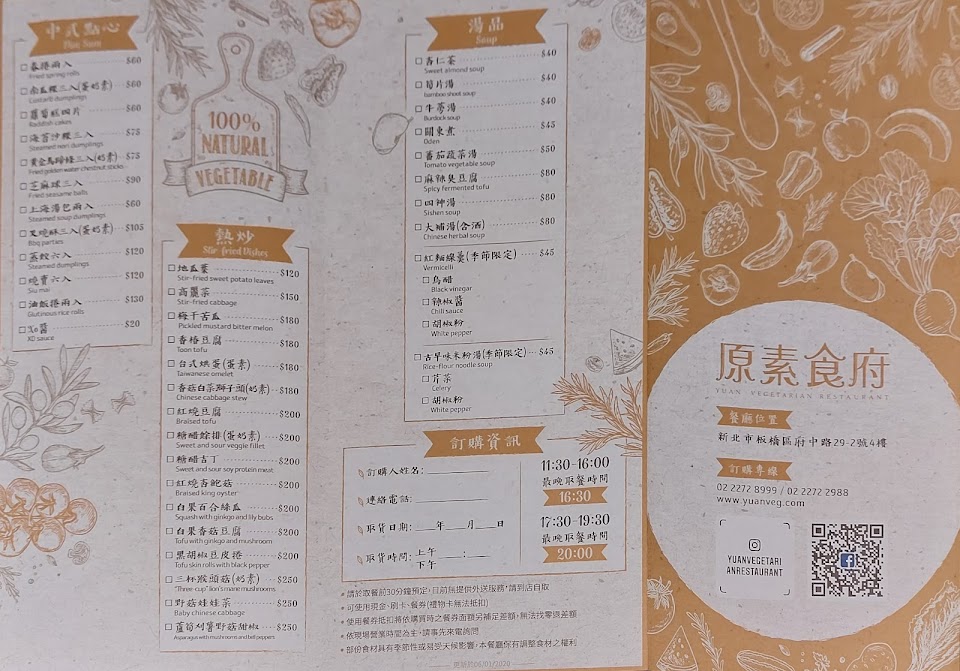 中式點心
Dim Sum
□春捲兩入 $60
Fried spring rolls
□南瓜粿三入(蛋奶素) $60
Custard dumplings
□蘿蔔糕四片 $60
Raddish cakes
□海苔沙粿三入 $75
Steamed nori dumplings
□黃金馬蹄條三入(奶素) $75
Fried golden water chestnut sticks
□芝麻球三入 $90
Fried sesame balls
□上海湯包兩入 $60
Steamed soup dumplings
□叉燒酥三入(蛋奶素) $105
Bbq parties
□蒸餃六入 $120
Steamed dumplings
□燒賣六入 $120
Siu mai
□油飯捲兩入 $130
Glutinous rice rolls
□XO醬 $20
XO sauce
100%
NATURAL
VEGETABLE
熱炒
Stir-fried Dishes
□地瓜葉 $120
Stir-fried sweet potato leaves
□高麗菜 $150
Stir-fried cabbage
□梅干苦瓜 $180
Pickled mustard bitter melon
□香椿豆腐 $180
Toon tofu
□台式烘蛋(蛋素) $180
Taiwanese omelet
□香菇白菜獅子頭(奶素) $180
Chinese cabbage stew
□紅燒豆腐 $200
Braised tofu
□糖醋排(蛋奶素) $200
Sweet and sour veggie fillet
□糖醋古丁 $200
Sweet and sour soy protein meat
□紅燒杏鮑菇 $200
Braised king oyster
□白果百合絲瓜 $200
Squash with ginkgo and lily bubs
□白果香菇豆腐 $200
Tofu with ginkgo and mushroom
□黑胡椒豆皮捲 $200
Tofu skin rolls with black pepper
□三杯猴頭菇(奶素) $250
"Three-cup" lion's mane mushrooms
□野菇娃娃菜 $250
Baby chinese cabbage
□蘆筍刈薯野菇甜椒 $250
Asparagus with mushrooms and bell peppers
湯品
Soup
□杏仁茶 $40
Sweet almond soup
□筍片湯 $40
bamboo shoot soup
□牛蒡湯 $40
Burdock soup
□關東煮 $45
Oden
□蕃茄蔬菜湯 $50
Tomato vegetable soup
□麻辣臭豆腐 $80
Spicy fermented tofu
□四神湯 $80
Sishen soup
□大補湯(含酒) $80
Chinese herbal soup
□紅麵線羹(季節限定) $45
Vermicelli
□烏醋
Black vinegar
□辣椒醬
Chili sauce
□胡椒粉
White pepper
□古早味米粉湯(季節限定) $45
Rice-flour noodle soup
□芹菜
Celery
□胡椒粉
White pepper
訂購資訊
訂購人姓名:
連絡電話:
取貨日期: 年 月 日
取貨時間: 上午 :
下午
11:30-16:00
最晚取餐時間
16:30
17:30-19:30
最晚取餐時間
20:00
• 請於取餐前30分鐘預定，目前無提供外送服務，請到店自取
• 可使用現金、刷卡、餐券(禮物卡無法抵扣)
• 使用餐券抵扣將依購買時之餐券面額另補足差額，無法找零退差額
• 依現場營業時間為主，請事先來電詢問
• 部份食材具有季節性或易受天候影響，本餐廳保有調整食材之權利
原素食府
YUAN VEGETARIAN RESTAURANT
餐廳位置
新北市板橋區府中路29-2號4樓
訂購專線
02 2272 8999 / 02 2272 2988
www.yuanveg.com
YUANVEGETARI
ANRESTAURANT